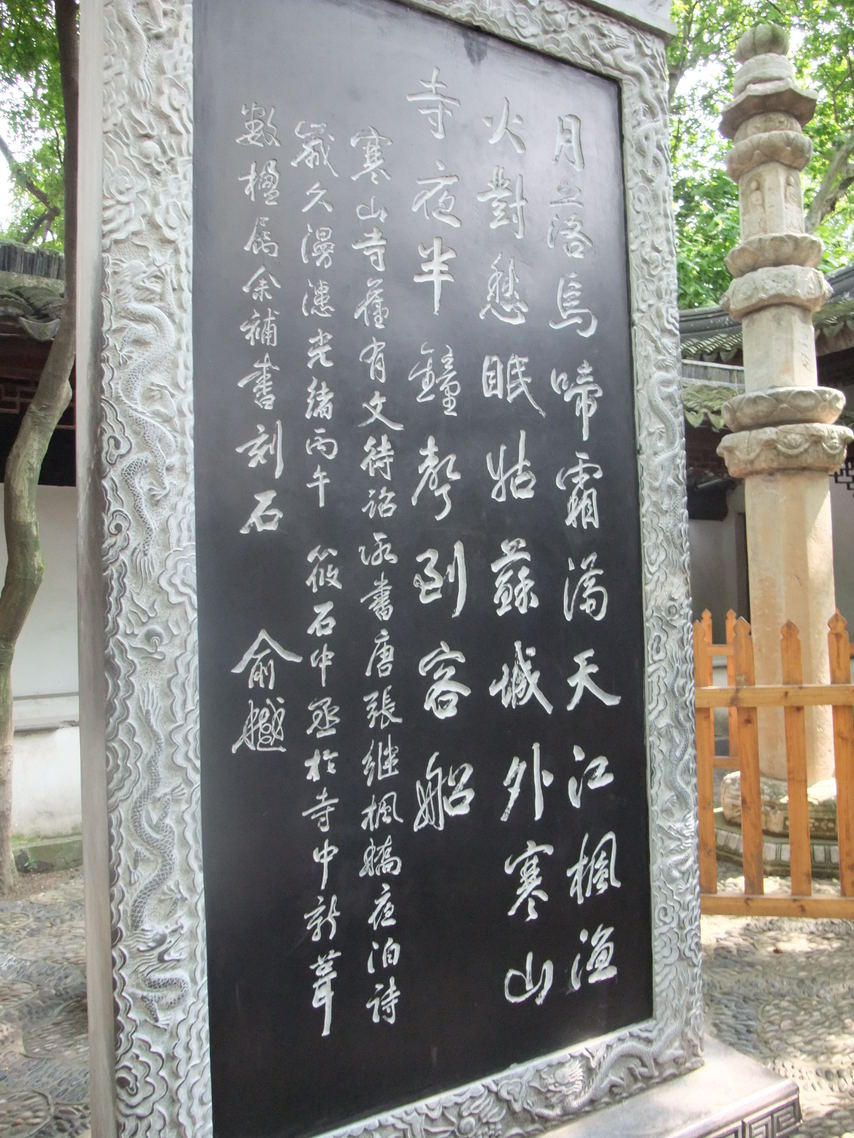 月落烏啼霜滿天江楓漁
火對愁眠姑蘇城外寒山
寺夜半鐘聲到客船
寒山寺舊有文待詔所書唐張继楓橋夜泊詩
歲久漫漶光緒丙午筱石中丞於寺中新葺
數楹属余補書刻石 俞樾